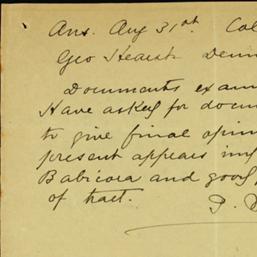 Ans. Aug 31st. Col
Geo Hearst
Documents exam
Have asked for docum
to give final opin
present appears im
Babicora and good
of tract.